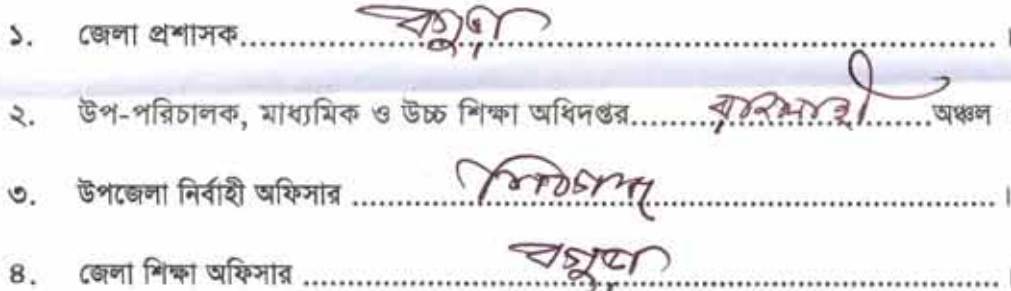 ১. জেলা প্রশাসক.......বগুড়া.......।
২. উপ-পরিচালক, মাধ্যমিক ও উচ্চ শিক্ষা অধিদপ্তর.......রাজশাহী.......অঞ্চল
৩. উপজেলা নির্বাহী অফিসার .......শিবগঞ্জ.......।
৪. জেলা শিক্ষা অফিসার .......বগুড়া.......।